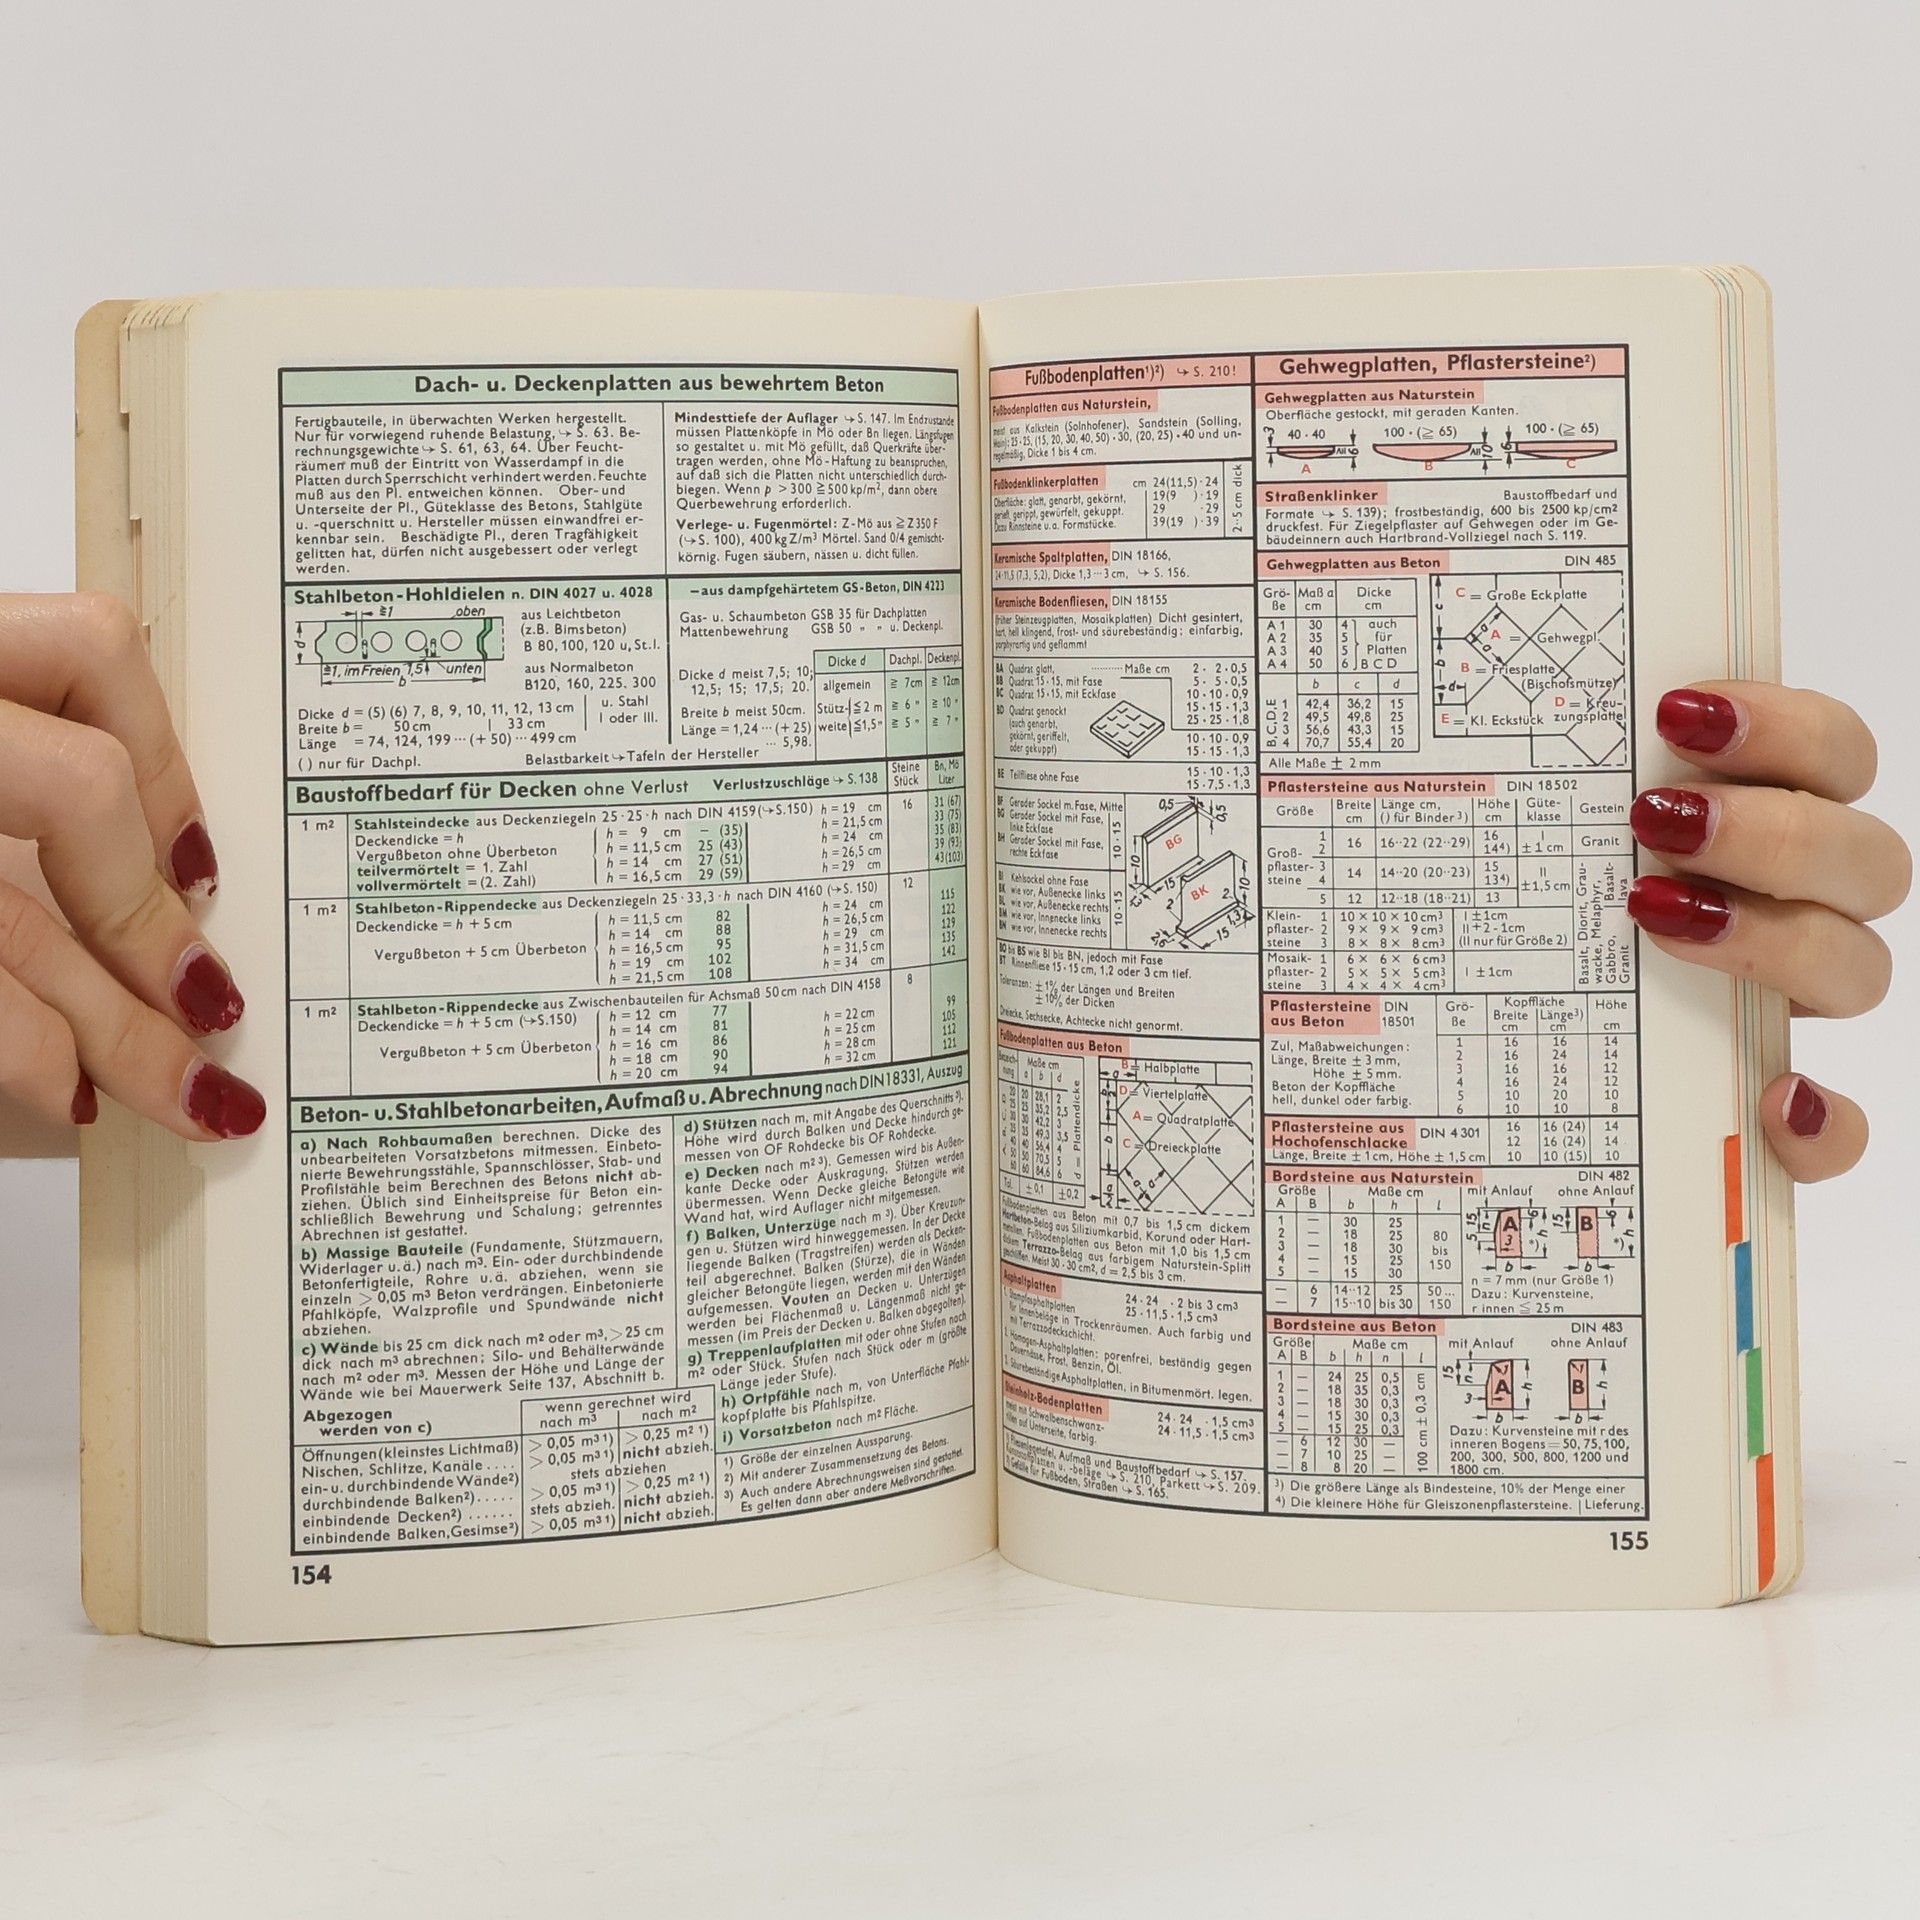 Dach- u. Deckenplatten aus bewehrtem Beton
Fertigbauteile, in überwachten Werken hergestellt.
Nur für vorwiegend ruhende Belastung, ↪ S. 63. Be-
rechnungsgewichte ↪ S. 61, 63, 64. Über Feucht-
räumen muß der Eintritt von Wasserdampf in die
Platten durch Sperrschicht verhindert werden. Feuchte
muß aus den Pl. entweichen können. Ober- und
Unterseite der Pl., Güteklasse des Betons, Stahlgüte
u. -querschnitt u. Hersteller müssen einwandfrei er-
kennbar sein. Beschädigte Pl., deren Tragfähigkeit
gelitten hat, dürfen nicht ausgebessert oder verlegt
werden.
Mindesttiefe der Auflager ↪ S. 147. Im Endzustande
müssen Plattenköpfe in Mö oder Bn liegen. Längsfugen
so gestaltet u. mit Mö gefüllt, daß Querkräfte über-
tragen werden, ohne Mö-Haftung zu beanspruchen,
auf daß sich die Platten nicht unterschiedlich durch-
biegen. Wenn p > 300 ≧ 500 kp/m², dann obere
Querbewehrung erforderlich.
Verlege- u. Fugenmörtel: Z-Mö aus ≧ Z 350 F
(↪ S. 100), 400 kg Z/m³ Mörtel. Sand 0/4 gemischt-
körnig. Fugen säubern, nässen u. dicht füllen.
Stahlbeton-Hohldielen n. DIN 4027 u. 4028
≧1 oben
d
≧1, im Freien 1,5 unten
b
aus Leichtbeton
(z.B. Bimsbeton)
B 80, 100, 120 u, St. I.
aus Normalbeton
B120, 160, 225. 300
Dicke d = (5) (6) 7, 8, 9, 10, 11, 12, 13 cm
Breite b = 50 cm | 33 cm
Länge = 74, 124, 199 ··· (+ 50) ··· 499 cm
u. Stahl
I oder III.
( ) nur für Dachpl.
Belastbarkeit ↪ Tafeln der Hersteller
—aus dampfgehärtetem GS-Beton, DIN 4223
Gas- u. Schaumbeton GSB 35 für Dachplatten
Mattenbewehrung GSB 50 " " u. Deckenpl.
Dicke d meist 7,5; 10;
12,5; 15; 17,5; 20.
Breite b meist 50cm.
Länge = 1,24 ··· (+ 25)
··· 5,98.
Dicke d Dachpl. Deckenpl.
allgemein ≧ 7cm ≧ 12cm
Stütz- ≦2 m ≧ 6 " ≧ 10 "
weite ≦1,5" ≧ 5 " ≧ 7 "
Baustoffbedarf für Decken ohne Verlust Verlustzuschläge ↪ S. 138
Steine Stück Bn, Mö Liter
1 m² Stahlsteindecke aus Deckenziegeln 25·25·h nach DIN 4159 (↪ S.150) h = 19 cm 16 31 (67)
Deckendicke = h h = 9 cm – (35) h = 21,5 cm 33 (75)
Vergußbeton ohne Überbeton h = 11,5 cm 25 (43) h = 24 cm 35 (83)
teilvermörtelt = 1. Zahl h = 14 cm 27 (51) h = 26,5 cm 39 (93)
vollvermörtelt = (2. Zahl) h = 16,5 cm 29 (59) h = 29 cm 43 (103)
1 m² Stahlbeton-Rippendecke aus Deckenziegeln 25·33,3·h nach DIN 4160 (↪ S. 150) 12
Deckendicke = h + 5 cm h = 11,5 cm 82 h = 24 cm 115
h = 14 cm 88 h = 26,5 cm 122
Vergußbeton + 5 cm Überbeton h = 16,5 cm 95 h = 29 cm 129
h = 19 cm 102 h = 31,5 cm 135
h = 21,5 cm 108 h = 34 cm 142
1 m² Stahlbeton-Rippendecke aus Zwischenbauteilen für Achsmaß 50 cm nach DIN 4158 8
Deckendicke = h + 5 cm (↪ S.150) h = 12 cm 77 h = 22 cm 99
h = 14 cm 81 h = 25 cm 105
Vergußbeton + 5 cm Überbeton h = 16 cm 86 h = 28 cm 112
h = 18 cm 90 h = 32 cm 121
h = 20 cm 94
Beton- u. Stahlbetonarbeiten, Aufmaß u. Abrechnung nach DIN 18331, Auszug
a) Nach Rohbaumaßen berechnen. Dicke des
unbearbeiteten Vorsatzbetons mitmessen. Einbeto-
nierte Bewehrungsstähle, Spannschlösser, Stab- und
Profilstähle beim Berechnen des Betons nicht ab-
ziehen. Üblich sind Einheitspreise für Beton ein-
schließlich Bewehrung und Schalung; getrenntes
Abrechnen ist gestattet.
b) Massige Bauteile (Fundamente, Stützmauern,
Widerlager u.ä.) nach m³. Ein- oder durchbindende
Betonfertigteile, Rohre u.ä. abziehen, wenn sie
einzeln > 0,05 m³ Beton verdrängen. Einbetonierte
Pfahlköpfe, Walzprofile und Spundwände nicht
abziehen.
c) Wände bis 25 cm dick nach m² oder m³, > 25 cm
dick nach m³ abrechnen; Silo- und Behälterwände
nach m² oder m³. Messen der Höhe und Länge der
Wände wie bei Mauerwerk Seite 137, Abschnitt b.
Abgezogen
werden von c)
wenn gerechnet wird
nach m³ nach m²
Öffnungen (kleinstes Lichtmaß) > 0,05 m³ ¹) > 0,25 m² ¹)
Nischen, Schlitze, Kanäle .... > 0,05 m³ ¹) nicht abzieh.
ein- u. durchbindende Wände²) stets abziehen
durchbindende Balken²)..... > 0,05 m³ ¹) > 0,25 m² ¹)
einbindende Decken²) ...... stets abzieh. nicht abzieh.
einbindende Balken, Gesimse²) > 0,05 m³ ¹) nicht abzieh.
d) Stützen nach m, mit Angabe des Querschnitts ³).
Höhe wird durch Balken und Decke hindurch ge-
messen von OF Rohdecke bis OF Rohdecke.
e) Decken nach m² ³). Gemessen wird bis Außen-
kante Decke oder Auskragung. Stützen werden
übermessen. Wenn Decke gleiche Betongüte wie
Wand hat, wird Auflager nicht mitgemessen.
f) Balken, Unterzüge nach m ³). Über Kreuzun-
gen u. Stützen wird hinweggemessen. In der Decke
liegende Balken (Tragstreifen) werden als Decken-
teil abgerechnet. Balken (Stürze), die in Wänden
gleicher Betongüte liegen, werden mit den Wänden
aufgemessen. Vouten an Decken u. Unterzügen
werden bei Flächenmaß u. Längenmaß nicht ge-
messen (im Preis der Decken u. Balken abgegolten).
g) Treppenlaufplatten mit oder ohne Stufen nach
m² oder Stück. Stufen nach Stück oder m (größte
Länge jeder Stufe).
h) Ortpfähle nach m, von Unterfläche Pfahl-
kopfplatte bis Pfahlspitze.
i) Vorsatzbeton nach m² Fläche.
1) Größe der einzelnen Aussparung.
2) Mit anderer Zusammensetzung des Betons.
3) Auch andere Abrechnungsweisen sind gestattet.
Es gelten dann aber andere Meßvorschriften.
154
Fußbodenplatten¹)²) ↪ S. 210!
Fußbodenplatten aus Naturstein,
meist aus Kalkstein (Solnhofener), Sandstein (Solling,
25·25, (15, 20, 30, 40, 50)·30, (20, 25)·40 und un-
regelmäßig, Dicke 1 bis 4 cm.
Fußbodenklinkerplatten cm 24(11,5)·24
Oberfläche: glatt, genarbt, gekörnt, 19(9 )·19
gerieft, gerippt, gewürfelt, gekuppt. 29 ·29
Dazu Rinnsteine u.a. Formstücke. 39(19 )·39
2··5 cm dick
Keramische Spaltplatten, DIN 18166,
24·11,5 (7,3, 5,2), Dicke 1,3 ··· 3 cm, ↪ S. 156.
Keramische Bodenfliesen, DIN 18155
(früher Steinzeugplatten, Mosaikplatten) Dicht gesintert,
hart, hell klingend, frost- und säurebeständig; einfarbig,
porphyrartig und geflammt
BA Quadrat glatt, ········· Maße cm 2 · 2·0,5
BB Quadrat 15·15, mit Fase 5 · 5·0,5
BC Quadrat 15·15, mit Eckfase 10·10·0,9
BD Quadrat genockt 15·15·1,3
(auch genarbt, 25·25·1,8
gekörnt, geriffelt, 10·10·0,9
oder gekuppt) 15·15·1,3
BE Teilfliese ohne Fase 15·10·1,3
15·7,5·1,3
BF Gerader Sockel m. Fase, Mitte
BG Gerader Sockel mit Fase,
linke Eckfase
BH Gerader Sockel mit Fase,
rechte Eckfase
10·15
BI Kehlsockel ohne Fase
BK wie vor, Außenecke links
BL wie vor, Außenecke rechts
BM wie vor, Innenecke links
BN wie vor, Innenecke rechts
10·15
0,5
BG
BK
BO bis BS wie BI bis BN, jedoch mit Fase
BT Rinnenfliese 15·15 cm, 1,2 oder 3 cm tief.
Toleranzen: ± 1% der Längen und Breiten
± 10% der Dicken
Dreiecke, Sechsecke, Achtecke nicht genormt.
Fußbodenplatten aus Beton
Maße cm
a b d
20 28,1 2
25 35,2 2,5
30 42,2 3
49,3 3,5
40 56,4 4
50 70,5 5
60 84,6 6
Tol. ±0,1 ±0,2
Plattendicke
B = Halbplatte
D = Viertelplatte
A = Quadratplatte
C = Dreieckplatte
Fußbodenplatten aus Beton mit 0,7 bis 1,5 cm dickem
Hartbeton-Belag aus Siliziumkarbid, Korund oder Hart-
metallen, Fußbodenplatten aus Beton mit 1,0 bis 1,5 cm
dickem Terrazzo-Belag aus farbigem Naturstein-Splitt
geschliffen. Meist 30·30 cm², d = 2,5 bis 3 cm.
Asphaltplatten
1. Stampfasphaltplatten 24·24 ·2 bis 3 cm³
für Innenbeläge in Trockenräumen. Auch farbig und 25·11,5·1,5 cm³
mit Terrazzodeckschicht.
2. Homogen-Asphaltplatten: porenfrei, beständig gegen
Dauernässe, Frost, Benzin, Öl.
3. Säurebeständige Asphaltplatten, in Bitumenmört. legen.
Steinholz-Bodenplatten
meist mit Schwalbenschwanz- 24·24 ·1,5 cm³
rillen auf Unterseite, farbig. 24·11,5·1,5 cm³
Aufmaß und Baustoffbedarf ↪ S. 157.
Kunststoffplatten u. -beläge ↪ S. 210, Parkett ↪ S. 209.
²) Gefälle für Fußboden, Straßen ↪ S. 165.
Gehwegplatten, Pflastersteine²)
Gehwegplatten aus Naturstein
Oberfläche gestockt, mit geraden Kanten.
40·40 100·(≧ 65) 100·(≧ 65)
A B C
Straßenklinker Baustoffbedarf und
Formate ↪ S. 139); frostbeständig, 600 bis 2500 kp/cm²
druckfest. Für Ziegelpflaster auf Gehwegen oder im Ge-
bäudeinnern auch Hartbrand-Vollziegel nach S. 119.
Gehwegplatten aus Beton DIN 485
Grö- Maß a Dicke
ße cm cm
A 1 30 4 auch
A 2 35 5 für
A 3 40 5 Platten
A 4 50 6 B C D
b c d
1 42,4 36,2 15
2 49,5 49,8 25
3 56,6 43,3 15
4 70,7 55,4 20
B, C, D, E
Alle Maße ± 2 mm
C = Große Eckplatte
A = Gehwegpl.
B = Friesplatte
(Bischofsmütze)
D = Kreu-
zungsplatte
E = Kl. Eckstück
Pflastersteine aus Naturstein DIN 18502
Größe Breite cm Länge cm, ( ) für Binder ³) Höhe cm Güte- klasse Gestein
Groß- pflaster- steine
1 2 16 16··22 (22··29) 16 14⁴) I ± 1 cm Granit
3 4 14 14··20 (20··23) 15 13⁴) II ±1,5 cm
5 12 12··18 (18··21) 13
Klein- 1 10 × 10 × 10 cm³ I ±1cm
pflaster- 2 9 × 9 × 9 cm³ II + 2 - 1cm
steine 3 8 × 8 × 8 cm³ (II nur für Größe 2)
Mosaik- 1 6 × 6 × 6 cm³
pflaster- 2 5 × 5 × 5 cm³ I ±1cm
steine 3 4 × 4 × 4 cm³
Basalt, Diorit, Grau-
wacke, Melaphyr,
Gabbro, Basalt-
Granit lava
Pflastersteine DIN Grö- Kopffläche Höhe
aus Beton 18501 ße Breite Länge³)
cm cm cm
Zul, Maßabweichungen: 1 16 16 14
Länge, Breite ± 3 mm, 2 16 24 14
Höhe ± 5 mm. 3 16 16 12
Beton der Kopffläche 4 16 24 12
hell, dunkel oder farbig. 5 10 20 10
6 10 10 8
Pflastersteine aus DIN 4301 16 16 (24) 14
Hochofenschlacke 12 16 (24) 14
Länge, Breite ± 1 cm, Höhe ± 1,5 cm 10 10 (15) 10
Bordsteine aus Naturstein DIN 482
Größe Maße cm mit Anlauf ohne Anlauf
A B b h l
1 — 30 25
2 — 18 25 80
3 — 18 30 bis
4 — 15 25 150
5 — 15 30
— 6 14··12 25 50...
— 7 15··10 bis 30 150
A B
n = 7 mm (nur Größe 1)
Dazu: Kurvensteine,
r innen ≦ 25 m
Bordsteine aus Beton DIN 483
Größe Maße cm mit Anlauf ohne Anlauf
A B b h n l
1 — 24 25 0,5
2 — 18 35 0,3
3 — 18 30 0,3
4 — 15 30 0,3
5 — 15 25 0,3
— 6 12 30 —
— 7 10 25 —
— 8 8 20 —
100 cm ± 0,3 cm
A B
Dazu: Kurvensteine mit r des
inneren Bogens = 50, 75, 100,
200, 300, 500, 800, 1200 und
1800 cm.
³) Die größere Länge als Bindesteine, 10% der Menge einer
⁴) Die kleinere Höhe für Gleiszonenpflastersteine. | Lieferung.
155